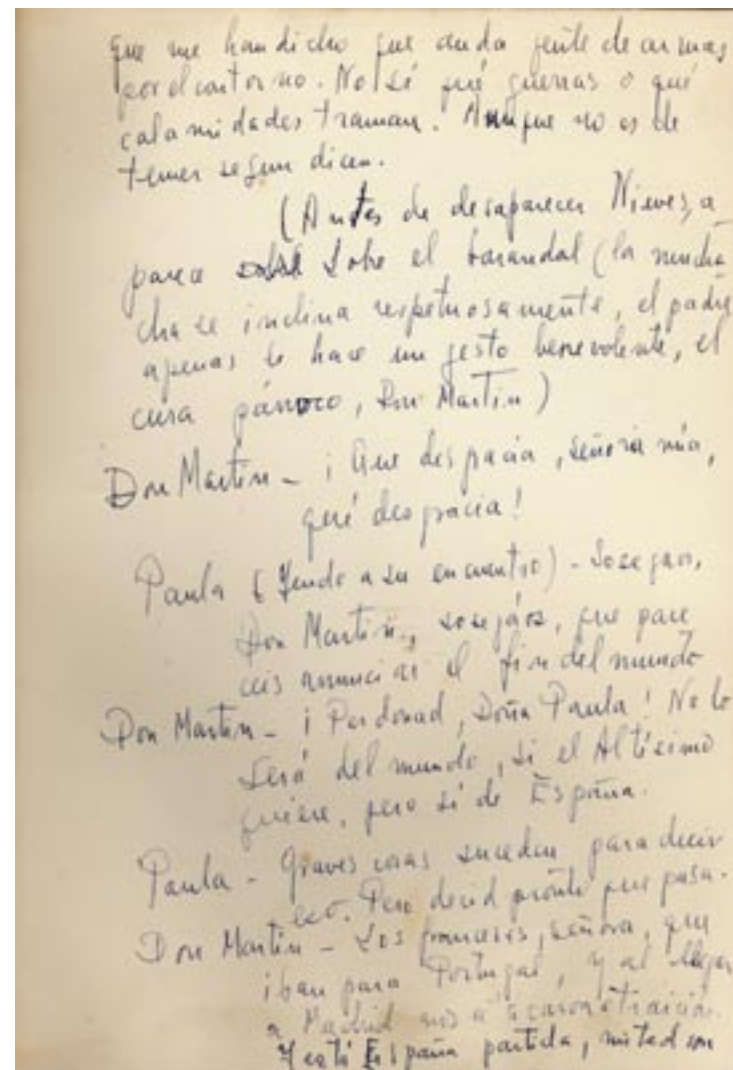 que me han dicho que anda gente de armas
por el contorno. No sé qué guerras o qué
calamidades traman. Aunque no es de
temer segun dicen.
(Antes de desaparecer Nieves, a
parece sobre el barandal (la mucha
cha se inclina respetuosamente, el padre
apenas le hace un gesto benevolente, el
cura párroco, Don Martin)
Don Martin - ¡Que desgracia, señora mía,
qué desgracia!
Paula (Yendo a su encuentro) - Sosegaos,
Don Martin, sosegáos, que pare
ceis anunciar el fin del mundo
Don Martin - ¡Perdonad, Doña Paula! No lo
será del mundo, si el Altísimo
quiere, pero sí de España.
Paula - Graves cosas suceden para decir
eso. Pero decid pronto que pasa.
Don Martin - Los franceses, señora, que
iban para Portugal, y al llegar
a Madrid nos atacaron a traición.
Y está España partida, mitad son